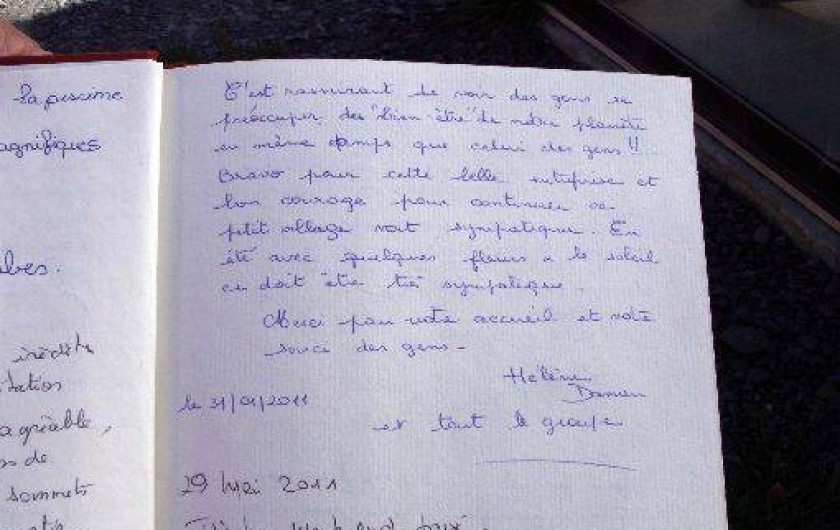 la piscine
agnifiques
bes.
inédite
tation
agréable,
s de
sommets
C'est rassurant de voir des gens se
préoccuper des "bien-être" de notre planète
en même temps que celui des gens !!
Bravo pour cette belle entreprise et
bon courage pour continuer ce
petit village sympatique. En
été avec quelques fleurs et le soleil
ce doit être très sympatique.
Merci pour votre accueil et votre
souci des gens -
Hélène
Damien
le 31/01/2011
et tout le groupe
29 Mai 2011